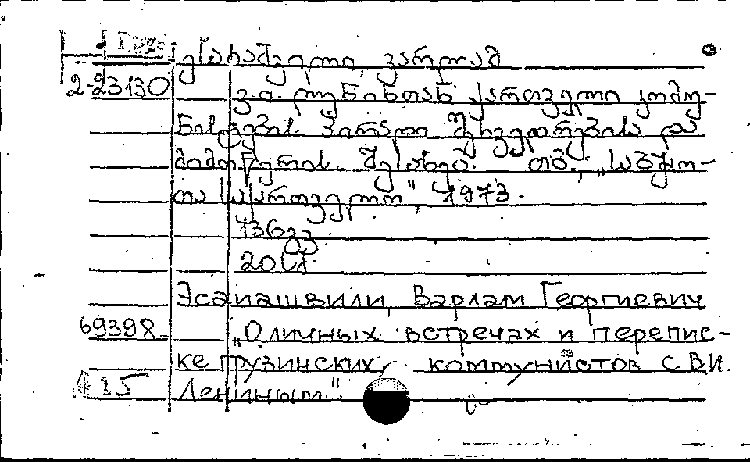 ესაიაშვილი, ვარლამ
2-23130
ვ. ი. ლენინთან ქართველი კომუ-
ნისტების პირადი შეხვედრებისა და
მიმოწერის შესახებ. თბ., „საბჭო-
თა საქართველო", 1973.
136გვ
20სმ
Эсаиашвили, Варлам Георгиевич
69398 „О личных встречах и перепис-
ке грузинских коммунистов с В.И.
Лениным"